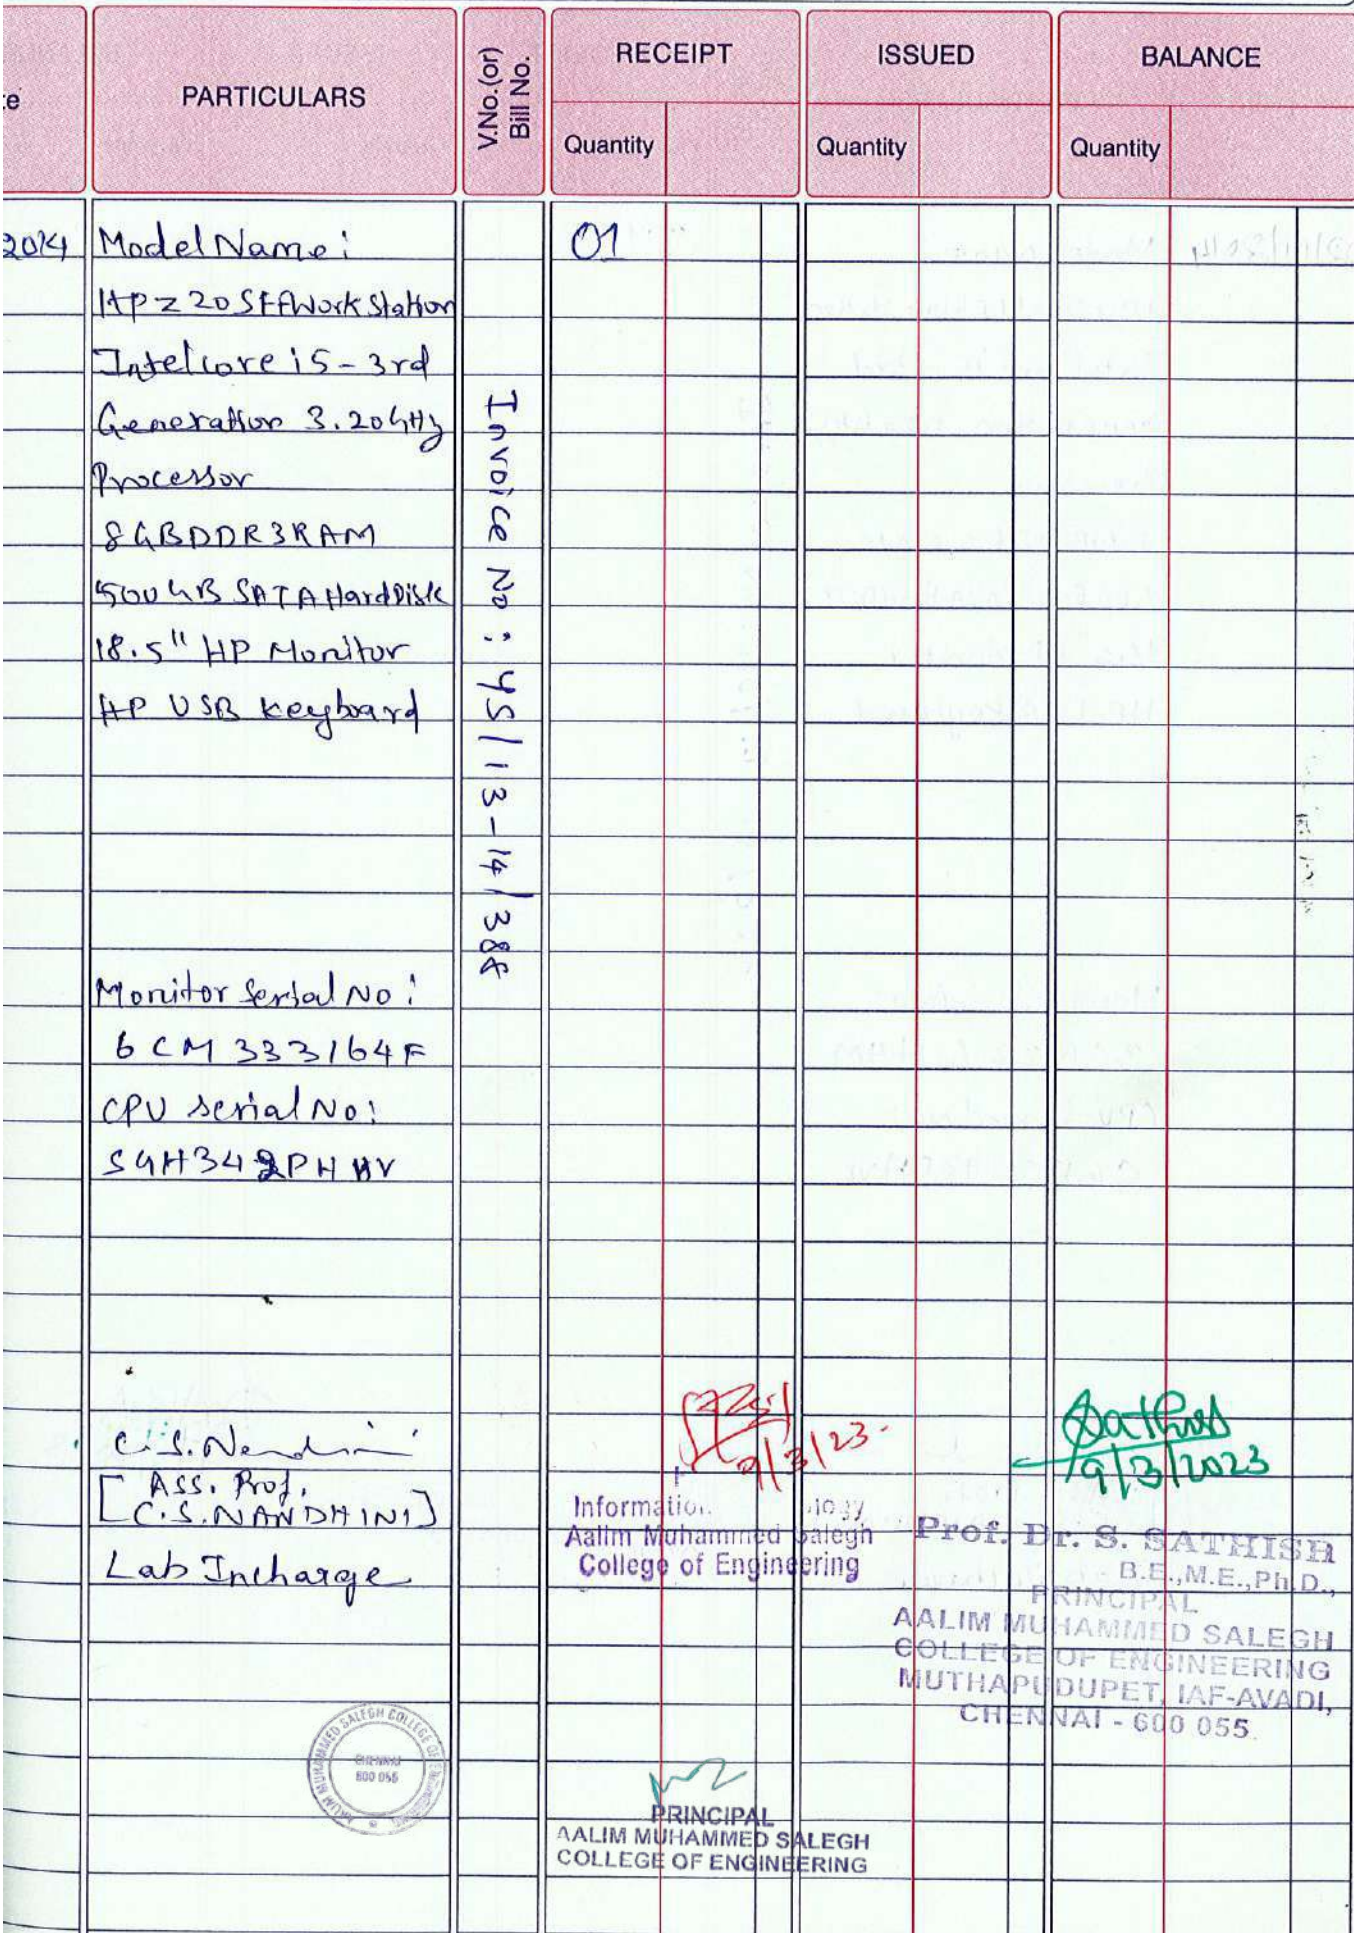 PARTICULARS
V.No.(or)
Bill No.
RECEIPT
ISSUED
BALANCE
Quantity
Quantity
Quantity
2014
Model Name:
01
HP Z 20 SFF Work Station
Intel core i5 - 3rd
Generation 3.20 GHz
Processor
8GB DDR3 RAM
500 GB SATA Hard Disk
18.5" HP Monitor
HP USB keyboard
Invoice No: YS/13-14/388
Monitor Serial No:
6CM333164F
CPU serial No:
C.S. Nandhini
[Ass. Prof.
C.S. NANDHINI]
Lab Incharge
9/3/23.
Aalim Muhammed Salegh
College of Engineering
Sathish
9/3/2023
Prof. Dr. S. SATHISH
B.E.,M.E.,Ph.D.,
PRINCIPAL
AALIM MUHAMMED SALEGH
COLLEGE OF ENGINEERING
MUTHAPUDUPET, IAF-AVADI,
CHENNAI - 600 055.
AALIM MUHAMMED SALEGH COLLEGE OF ENGINEERING
CHENNAI
600 055
PRINCIPAL
AALIM MUHAMMED SALEGH
COLLEGE OF ENGINEERING